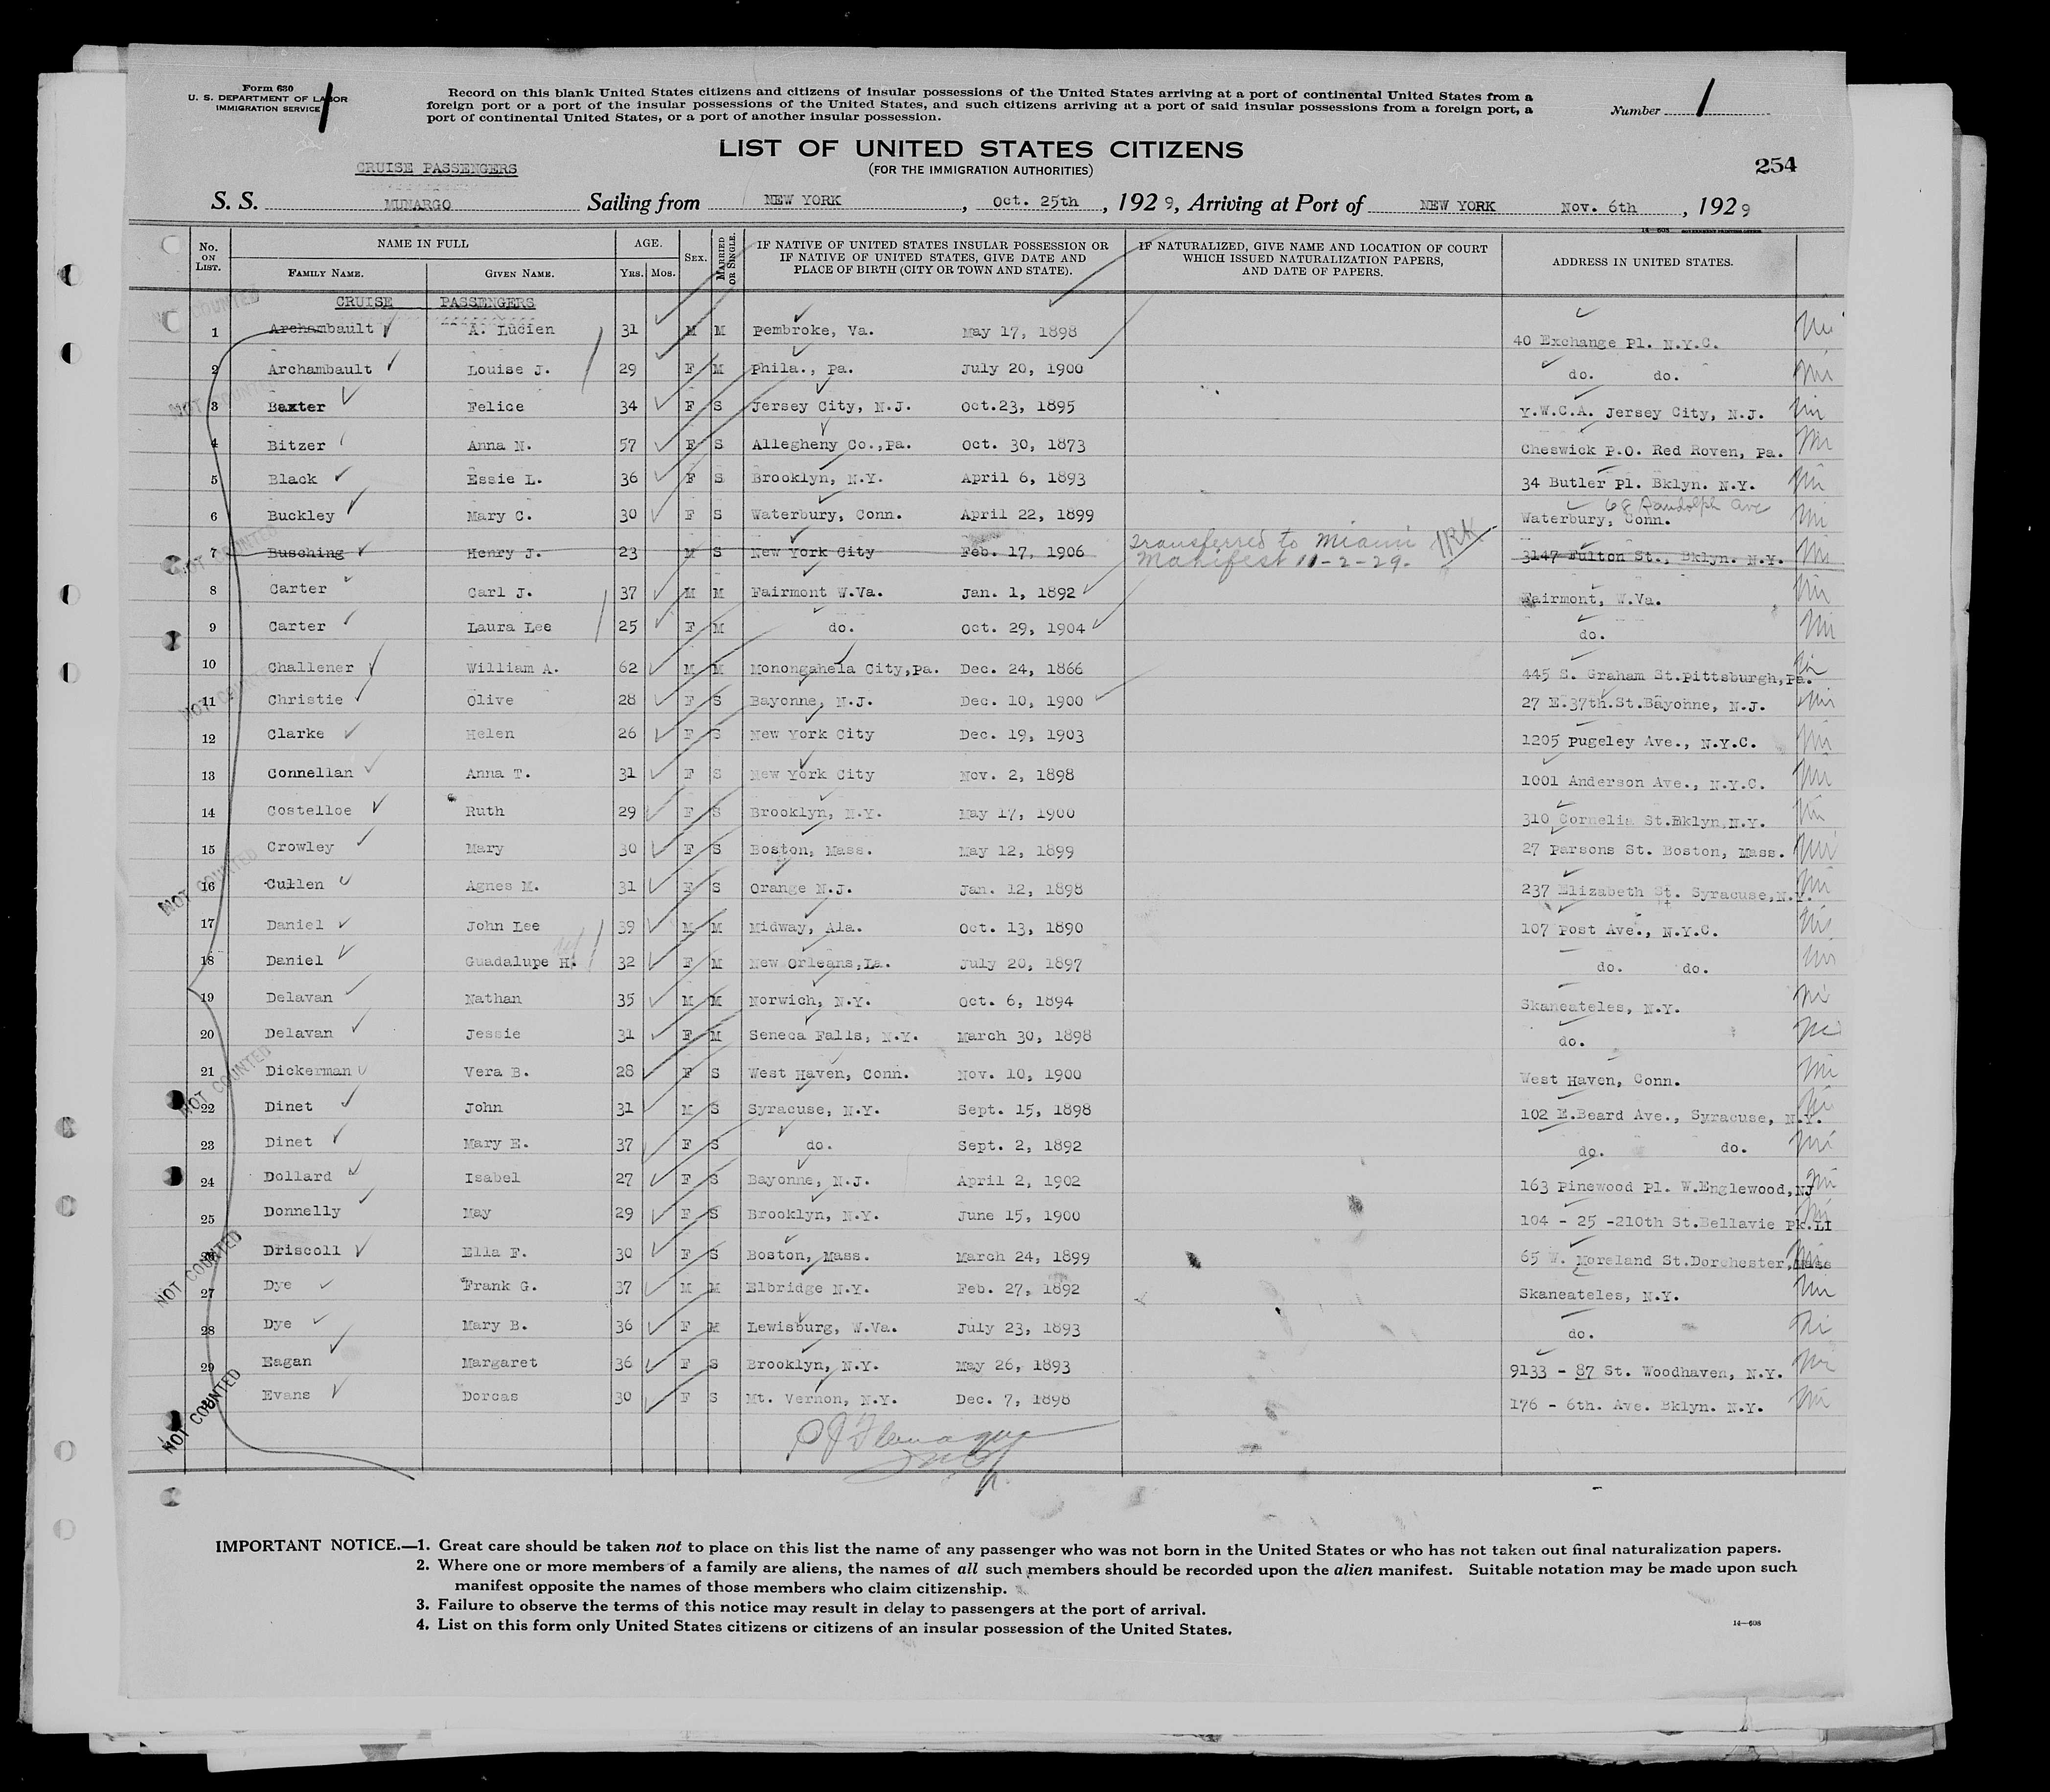 Form 630
U. S. DEPARTMENT OF LABOR
IMMIGRATION SERVICE
1
Record on this blank United States citizens and citizens of insular possessions of the United States arriving at a port of continental United States from a
foreign port or a port of the insular possessions of the United States, and such citizens arriving at a port of said insular possessions from a foreign port, a
port of continental United States, or a port of another insular possession.
Number 1
LIST OF UNITED STATES CITIZENS
(FOR THE IMMIGRATION AUTHORITIES)
CRUISE PASSENGERS
254
S. S. MUNARGO Sailing from NEW YORK, Oct. 25th, 1929, Arriving at Port of NEW YORK Nov. 6th, 1929
14—608 GOVERNMENT PRINTING OFFICE
No. ON LIST. NAME IN FULL FAMILY NAME. GIVEN NAME. AGE. YRS. MOS. SEX. MARRIED OR SINGLE. IF NATIVE OF UNITED STATES INSULAR POSSESSION OR IF NATIVE OF UNITED STATES, GIVE DATE AND PLACE OF BIRTH (CITY OR TOWN AND STATE). IF NATURALIZED, GIVE NAME AND LOCATION OF COURT WHICH ISSUED NATURALIZATION PAPERS, AND DATE OF PAPERS. ADDRESS IN UNITED STATES.
CRUISE PASSENGERS
1 Archambault A. Lucien 31 M M Pembroke, Va. May 17, 1898 40 Exchange Pl. N.Y.C.
2 Archambault Louise J. 29 F M Phila., Pa. July 20, 1900 do. do.
3 Baxter Felice 34 F S Jersey City, N.J. Oct.23, 1895 Y.W.C.A. Jersey City, N.J.
4 Bitzer Anna N. 57 F S Allegheny Co.,Pa. Oct. 30, 1873 Cheswick P.O. Red Roven, Pa.
5 Black Essie L. 36 F S Brooklyn, N.Y. April 6, 1893 34 Butler Pl. Bklyn. N.Y.
6 Buckley Mary C. 30 F S Waterbury, Conn. April 22, 1899 68 Randolph Ave Waterbury, Conn.
7 Busching Henry J. 23 M S New York City Feb. 17, 1906 Transferred to Miami Manifest 11-2-29. 3147 Fulton St., Bklyn. N.Y.
8 Carter Carl J. 37 M M Fairmont W.Va. Jan. 1, 1892 Fairmont, W.Va.
9 Carter Laura Lee 25 F M do. Oct. 29, 1904 do.
10 Challener William A. 62 M M Monongahela City,Pa. Dec. 24, 1866 445 S. Graham St.Pittsburgh,Pa.
11 Christie Olive 28 F S Bayonne, N.J. Dec. 10, 1900 27 E.37th.St.Bayonne, N.J.
12 Clarke Helen 26 F S New York City Dec. 19, 1903 1205 Pugeley Ave., N.Y.C.
13 Connellan Anna T. 31 F S New York City Nov. 2, 1898 1001 Anderson Ave., N.Y.C.
14 Costelloe Ruth 29 F S Brooklyn, N.Y. May 17, 1900 310 Cornelia St.Bklyn,N.Y.
15 Crowley Mary 30 F S Boston, Mass. May 12, 1899 27 Parsons St. Boston, Mass.
16 Cullen Agnes M. 31 F S Orange N.J. Jan. 12, 1898 237 Elizabeth St. Syracuse,N.Y.
17 Daniel John Lee 39 M M Midway, Ala. Oct. 13, 1890 107 Post Ave., N.Y.C.
18 Daniel Guadalupe H. 32 F M New Orleans,La. July 20, 1897 do. do.
19 Delavan Nathan 35 M M Norwich, N.Y. Oct. 6, 1894 Skaneateles, N.Y.
20 Delavan Jessie 31 F M Seneca Falls, N.Y. March 30, 1898 do.
21 Dickerman Vera B. 28 F S West Haven, Conn. Nov. 10, 1900 West Haven, Conn.
22 Dinet John 31 M S Syracuse, N.Y. Sept. 15, 1898 102 E.Beard Ave., Syracuse, N.Y.
23 Dinet Mary E. 37 F S do. Sept. 2, 1892 do. do.
24 Dollard Isabel 27 F S Bayonne, N.J. April 2, 1902 163 Pinewood Pl. W.Englewood,NJ
25 Donnelly May 29 F S Brooklyn, N.Y. June 15, 1900 104 - 25 -210th St.Bellavie Pk.LI
26 Driscoll Ella F. 30 F S Boston, Mass. March 24, 1899 65 W. Moreland St.Dorchester,Mass
27 Dye Frank G. 37 M M Elbridge N.Y. Feb. 27, 1892 Skaneateles, N.Y.
28 Dye Mary B. 36 F M Lewisburg, W.Va. July 23, 1893 do.
29 Eagan Margaret 36 F S Brooklyn, N.Y. May 26, 1893 9133 - 87 St. Woodhaven, N.Y.
Evans Dorcas 30 F S Mt. Vernon, N.Y. Dec. 7, 1898 176 - 6th. Ave. Bklyn. N.Y.
NOT COUNTED
NOT COUNTED
NOT COUNTED
NOT COUNTED
NOT COUNTED
NOT COUNTED
NOT COUNTED
NOT COUNTED
IMPORTANT NOTICE.—1. Great care should be taken not to place on this list the name of any passenger who was not born in the United States or who has not taken out final naturalization papers.
2. Where one or more members of a family are aliens, the names of all such members should be recorded upon the alien manifest. Suitable notation may be made upon such
manifest opposite the names of those members who claim citizenship.
3. Failure to observe the terms of this notice may result in delay to passengers at the port of arrival.
4. List on this form only United States citizens or citizens of an insular possession of the United States.
14—608